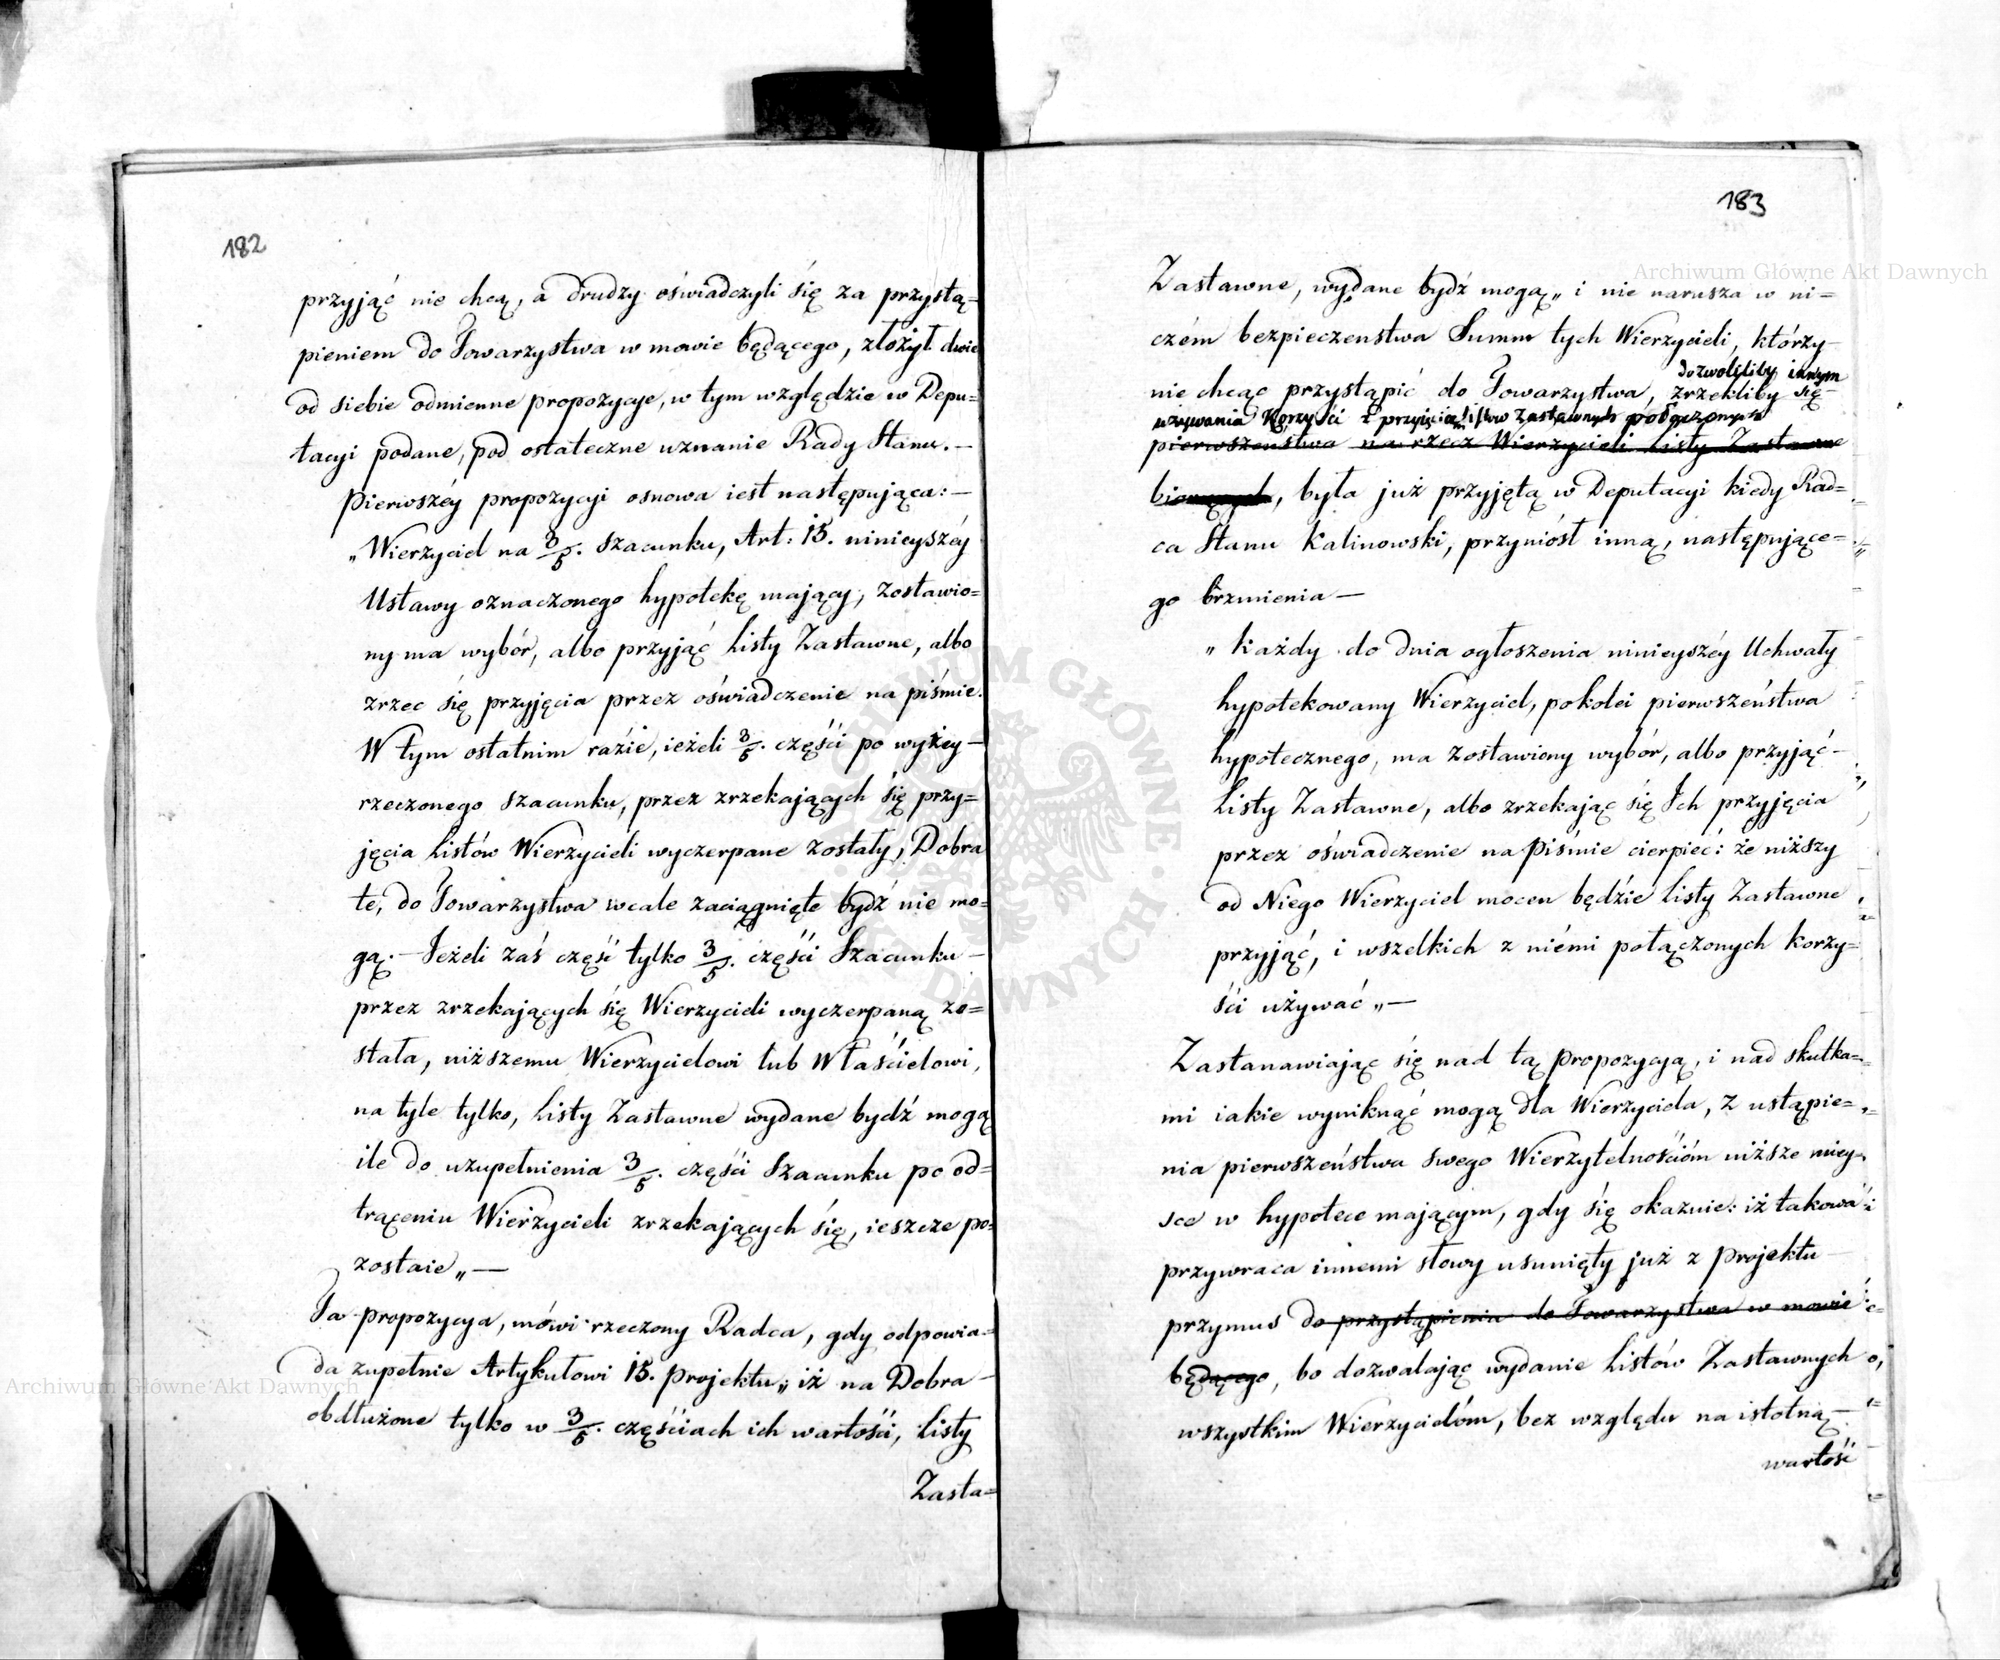 182
przyjąć nie chcą, a drudzy oświadczyli się za przystą=
pieniem do Towarzystwa w mowie będącego, złożył dwie
od siebie odmienne propozycye, w tym względzie w Depu=
tacyi podane, pod ostateczne uznanie Rady Stanu. —
Pierwszéy propozycyi osnowa iest następująca: —
„Wierzyciel na 3/5. szacunku, Art: 15. ninieyszéy
Ustawy oznaczonego hypotekę mający, zostawio=
ny ma wybór, albo przyjąć Listy Zastawne, albo
zrzec się przyjęcia przez oświadczenie na piśmie.
W tym ostatnim razie, ieżeli 3/5. części po wyżey —
rzeczonego szacunku, przez zrzekających się przy=
jęcia Listów Wierzycieli wyczerpane zostały, Dobra
te, do Towarzystwa wcale zaciągnięte bydź nie mo=
gą. — Jeżeli zaś część tylko 3/5. części Szacunku —
przez zrzekających się Wierzycieli wyczerpaną zo=
stała, niższemu Wierzycielowi lub Właścielowi,
na tyle tylko, Listy Zastawne wydane bydź mogą
ile do uzupełnienia 3/5. części Szacunku po od=
trąceniu Wierzycieli zrzekających się, ieszcze po=
zostaie„ —
Ta propozycya, mówi rzeczony Radca, gdy odpowia=
da zupełnie Artykułowi 15. Projektu„ iż na Dobra —
obdłużone tylko w 3/5. częściach ich wartości, Listy
Zasta=
183
Zastawne, wydane bydź mogą„ i nie narusza w ni=
czém bezpieczenstwa Summ tych Wierzycieli, którzy —
dozwoliliby innym
nie chcąc przystąpić do Towarzystwa, zrzekliby się —
używania Korzyści z przyięcia Listów Zastawnych połączonych
pierwszenstwa na rzecz Wierzycieli Listy Zastawne
biorących, była już przyjętą w Deputacyi kiedy Rad=
ca Stanu Kalinowski, przyniósł inną, następujące=
go brzmienia —
„Każdy do dnia ogłoszenia ninieyszéy Uchwały
hypotekowany Wierzyciel, po kolei pierwszeństwa
hypotecznego, ma zostawiony wybór, albo przyjąć —
Listy Zastawne, albo zrzekając się Ich przyjęcia
przez oświadczenie na Piśmie cierpieć: że niższy
od Niego Wierzyciel mocen będzie Listy Zastawne
przyjąć, i wszelkich z niémi połączonych korzy=
ści używać„ —
Zastanawiając się nad tą propozycyą, i nad skutka=
mi iakie wyniknąć mogą dla Wierzyciela, z ustąpie=
nia pierwszeństwa swego Wierzytelnościóm niższe miey=
sce w hypotece mającym, gdy się okazuie: iż takowa
przywraca innemi słowy usunięty już z Projektu —
przymus do przystąpienia do Towarzystwa w mowie
będącego, bo dozwalając wydanie Listów Zastawnych
wszystkim Wierzycielóm, bez względu na istotną —
wartość
Archiwum Główne Akt Dawnych
Archiwum Główne Akt Dawnych
ARCHIWUM GŁÓWNE AKT DAWNYCH